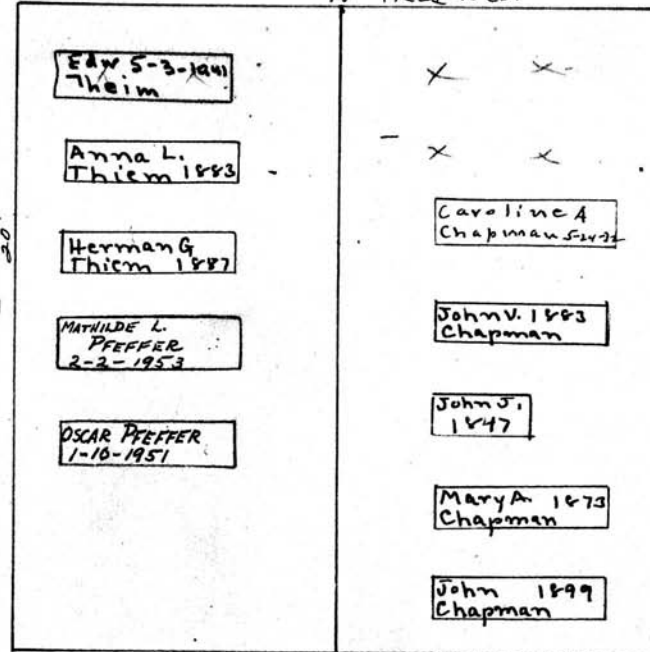 20'
Edw 5-3-1941
Theim
Anna L.
Thiem 1883
Herman G
Thiem 1887
MATHILDE L.
PFEFFER
2-2-1953
OSCAR PFEFFER
1-10-1951
Caroline A
Chapman
John V. 1883
Chapman
John J.
1847
Mary A. 1873
Chapman
John 1899
Chapman